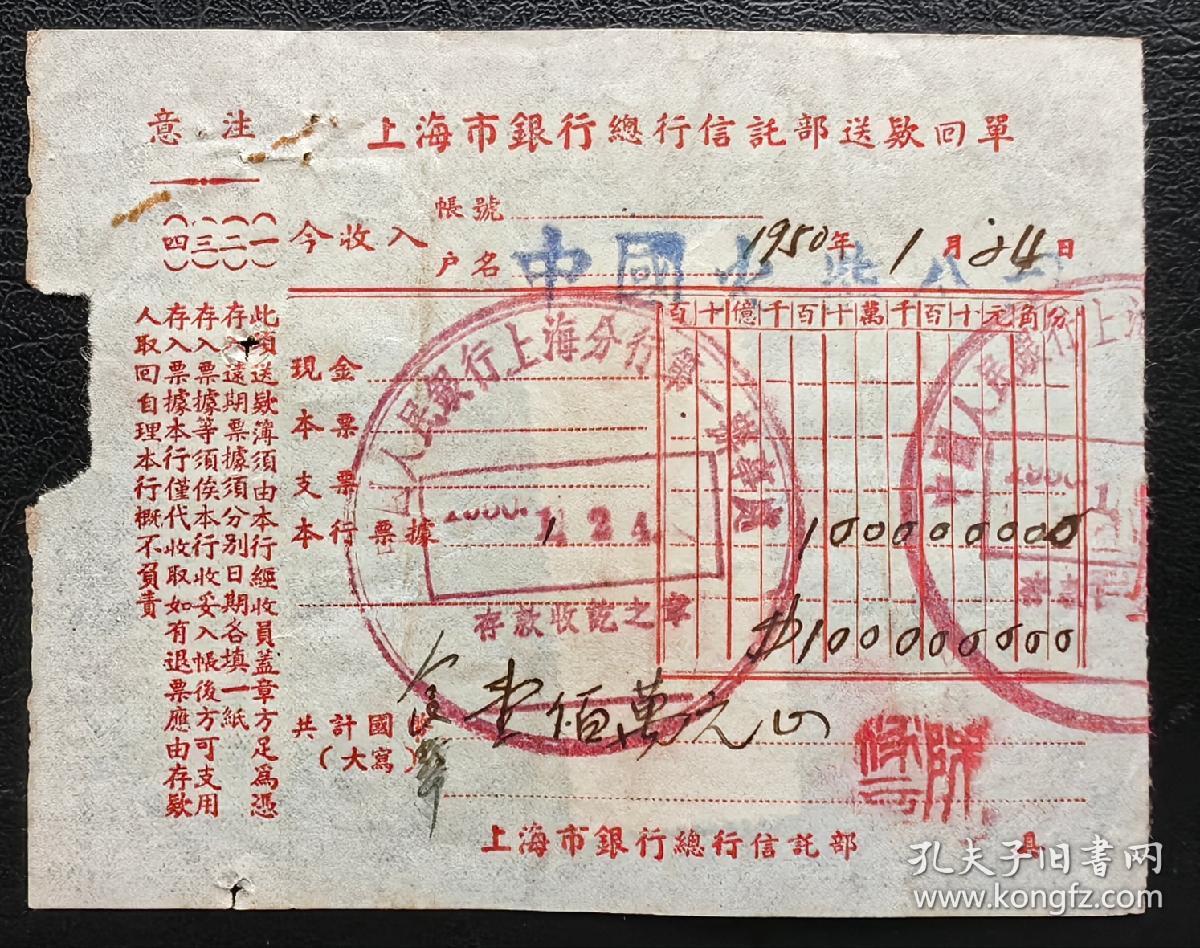 上海市銀行總行信託部送欵回單
意注
今收入
帳號
户名
中國
1950年1月24日
百十億千百十萬千百十元角分
現金
本票
支票
本行票據
100000000
100000000
共計國
(大寫)
金壹佰萬元正
上海市銀行總行信託部
具
(一)此項送欵簿須由本行經收員蓋章方足為憑
(二)存入遠期票據須分別日期各填一紙
(三)存入票據等須俟本行收妥入帳後方可支用
(四)存入票據本行僅代收取如有退票應由存欵
人取回自理本行概不負責
人民銀行上海分行第一
1950. 1. 24.
存款收訖之章
中國人民銀行上海
1950. 1
陳
孔夫子旧书网
www.kongfz.com